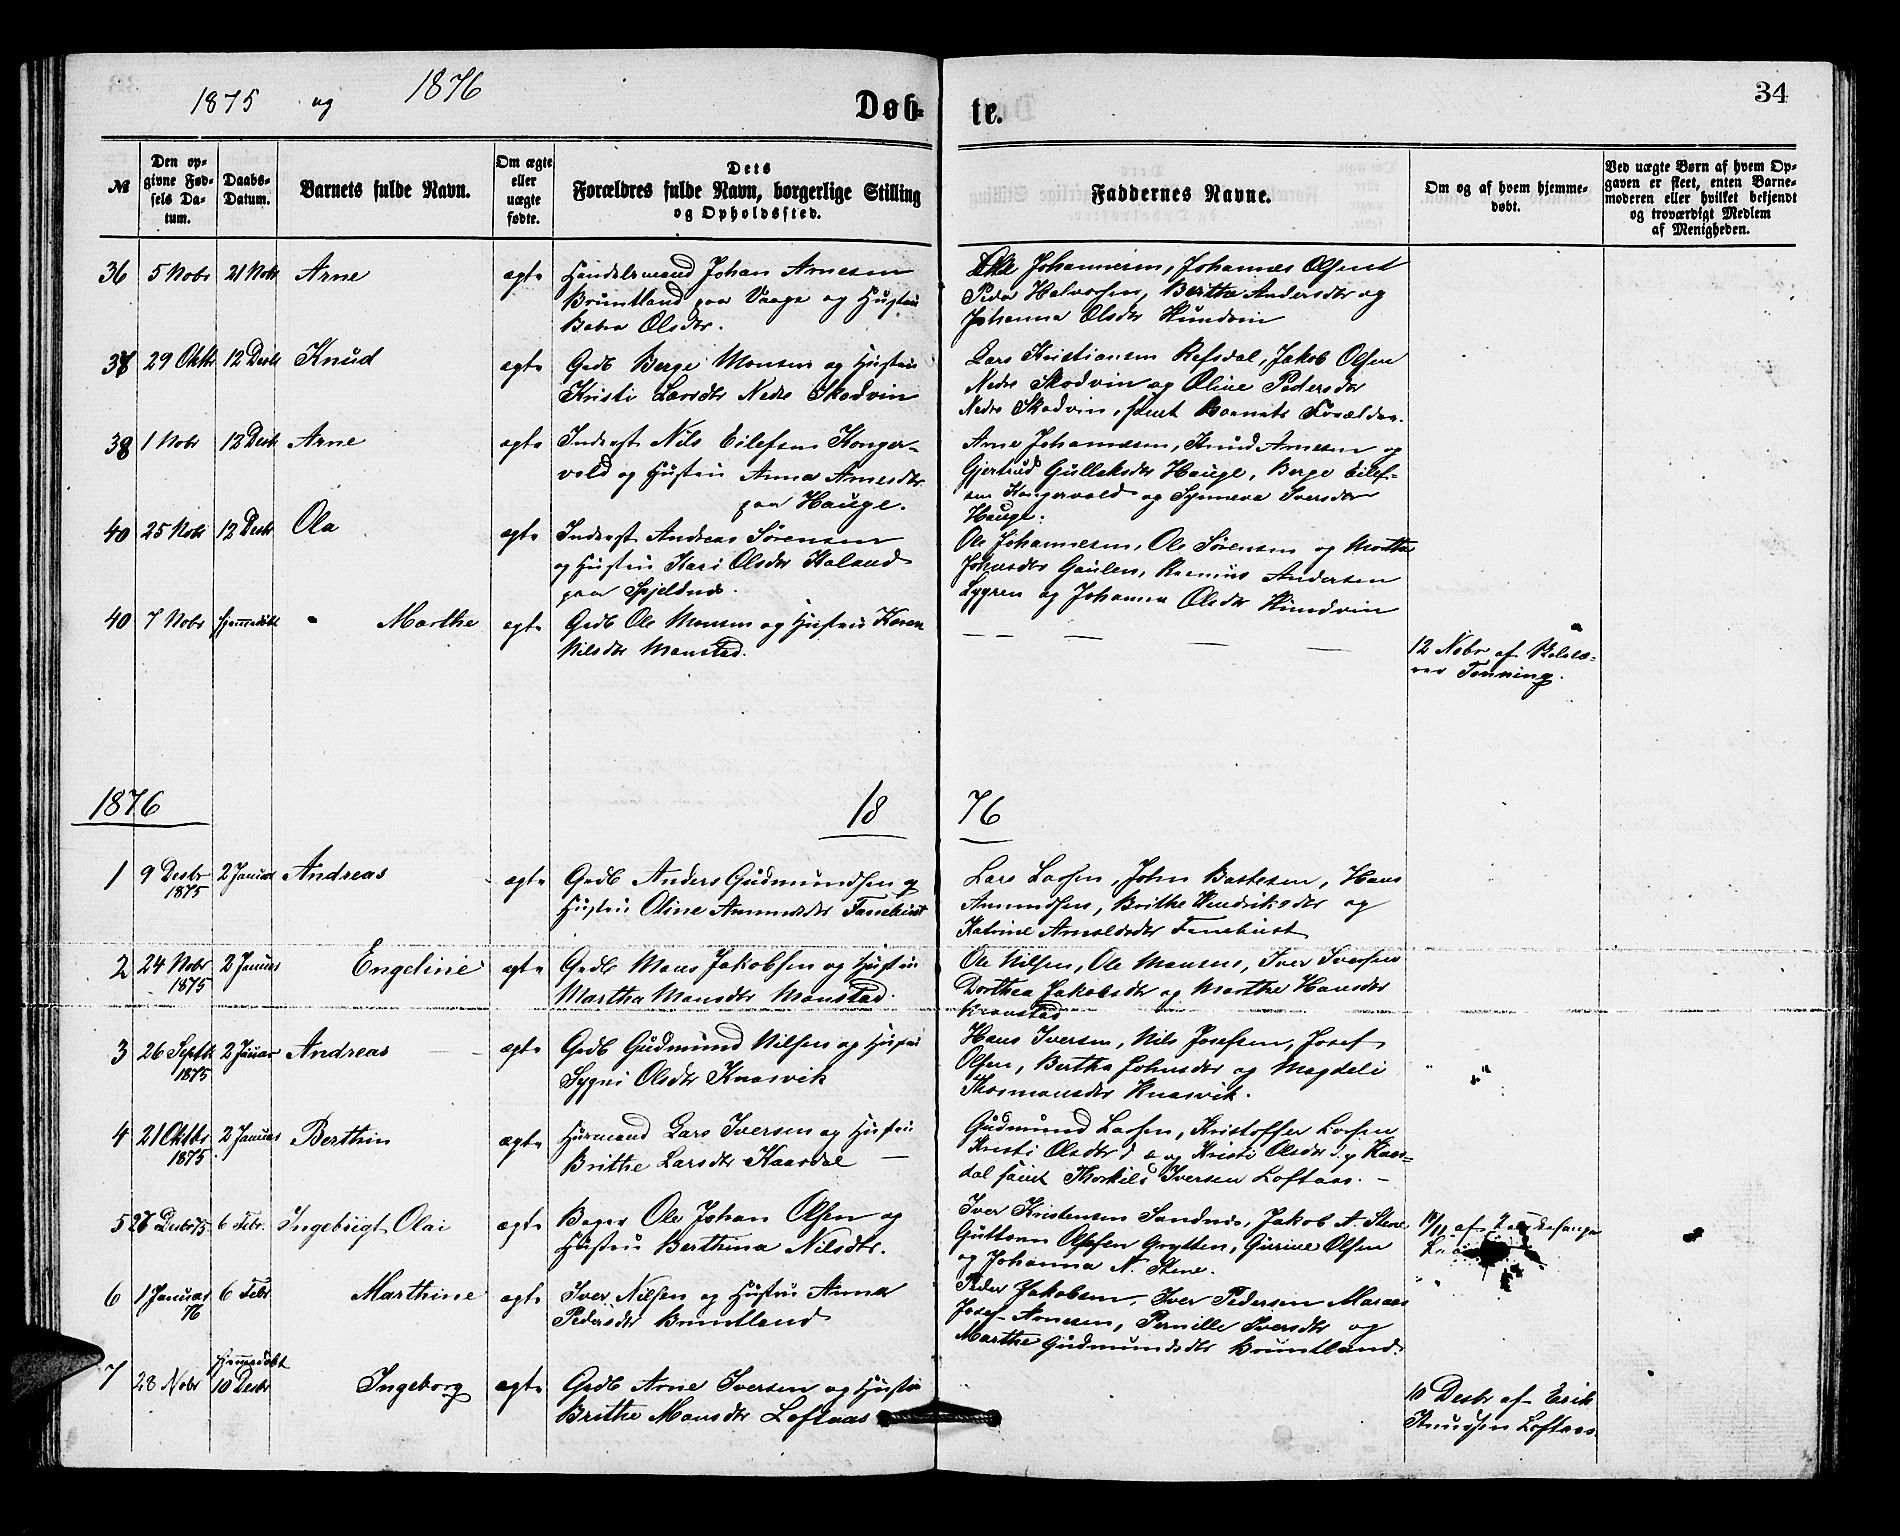 1875 og 1876
Døb-
te.
34
№
Den op-
givne Fød-
sels Da-
tum.
Daabs-
Datum.
Barnets fulde Navn.
Om ægte
eller
uægte
fødte.
Dets
Forældres fulde Navn, borgerlige Stilling
og Opholdssted.
Faddernes Navne.
Om og af hvem hjemme-
døbt.
Ved uægte Børn af hvem Op-
gaven er skeet, enten Barne-
moderen eller hvilket bekjendt
og troværdigt Medlem
af Menigheden.
36 5 Nobr 21 Nob Arne ægte Handelsmand Johan Arnesen
Bruntland paa Vaage og Hustru
Olsdtr.
Johannesen, Johannes Olsen
Peder Halvorsen, Berthe Andersdtr og
Johanna Olsdtr Hundvin
37 29 Oktb 12 Desb Knud ægte Grdb Berge Monsen og Hustru
Kristi Larsdtr Nedre Skodvin
Lars Kristiansen Refsdal, Jakob Olsen
Nedre Skodvin og Oline Pedersdtr
Nedre Skodvin, samt Barnets Forældre.
38 1 Nobr 12 Desb Arne ægte Inderst Nils Eilefsen Konger-
vold og Hustru Anna Arnesdtr
paa Hauge.
Arne Johannesen, Knud Arnesen og
Gjertrud Gulleksdtr Hauge, Berge Eilef-
sen Kongervold og Synneva Iversdtr
Hauge.
40 25 Nobr 12 Desb Ola ægte Inderst Andreas Sørensen
og Hustru Kari Olsdtr Haland
paa Fjeldnd.
Ole Johannesen, Ole Sørensen og Marthe
Johnsdtr Gaulen, Rasmus Andersen
Lygren og Johanna Olsdtr Hundvin
40 7 Nobr hjemmedøbt Marthe ægte Grdb Ole Monsen og Hustru Karen
Nilsdtr Monstad.
12 Nobr af
Tenning.
1876
18 76
1 9 Desbr
1875 2 Januar Andreas ægte Grdb Anders Gudmundsen og
Hustru Oline Fanebust
Lars Larsen, John Bastesen, Hans
Amundsen, Brithe Hendriksdtr og
Katrine Arnoldsdtr Fanebust
2 24 Nobr
1875 2 Januar Engeline ægte Grdb Mons Jakobsen og Hustru
Martha Monsdtr Monstad.
Ole Nilsen, Ole Monsen, Iver Iversen
Dorthea Jakobsdtr og Marthe Hansdtr
Monstad
3 26 Septb
1875 2 Januar Andreas ægte Grdb Gudmund Nilsen og Hustru
Sygni Olsdtr Knarvik
Hans Iversen, Nils Josefsen, Josef
Olsen, Bertha Johnsdtr og Magdeli
Thormonsdtr Knarvik.
4 21 Oktbr
1875 2 Januar Berthin ægte Husmand Lars Iversen og Hustru
Brithe Larsdtr Kaardal
Gudmund Larsen, Kristoffer Larsen
Kristi Olsdtr d. æ og Kristi Olsdtr d. y Kaar-
dal samt Thorkild Iversen Loftaas.
5 26 Desbr 75 6 Febr. Ingebrigt Olai ægte Bager Ole Johan Olsen og
Hustru Berthina Nilsdtr.
Iver Kristensen Sandnæs, Jakob N. Stene
Guttorm Olsen Grytten, Gurine Olsen
og Johanna N. Stene.
af
6 1 Januar
76 6 Febr Marthine ægte Iver Nilsen og Hustru Anna
Pedersdtr Bruntland
Peder Jakobsen, Iver Pedersen Maraas
Josef Arnesen, Pernille Iversdtr og
Marthe Gudmundsdtr Bruntland.
7 28 Nobr Hjemmedøbt
10 Desbr Ingeborg ægte Grdb Arne Iversen og Hustru
Brithe Monsdtr Loftaas
10 Desbr af Erik
Knudsen Loftaas.